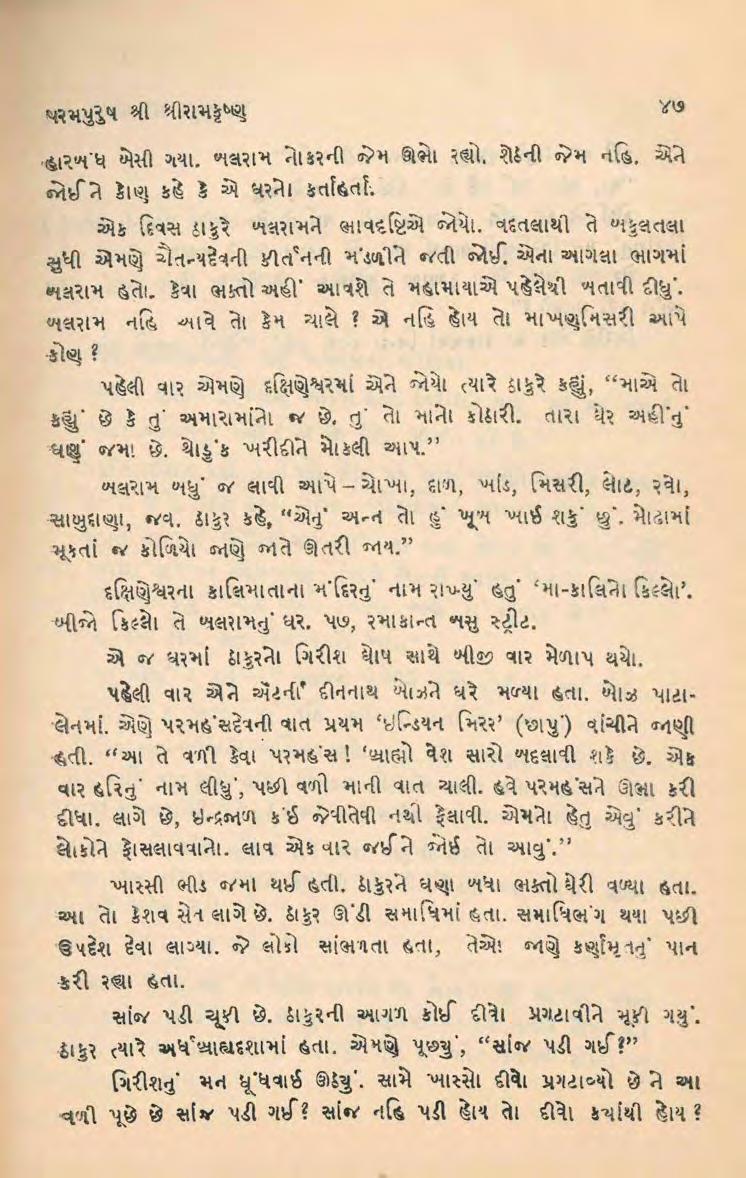 પરમપુરુષ શ્રી શ્રીરામકૃષ્ણ ૪૭
હારબંધ બેસી ગયા. બલરામ નોકરની જેમ ઊભો રહ્યો. શેઠની જેમ નહિ. એને
જોઈને કોણ કહે કે એ ઘરનો કર્તાહર્તા.
એક દિવસ ઠાકુરે બલરામને ભાવદૃષ્ટિએ જોયો. વટતલાથી તે બકુલતલા
સુધી એમણે ચૈતન્યદેવની કીર્તનની મંડળીને જતી જોઈ. એના આગલા ભાગમાં
બલરામ હતો. કેવા ભક્તો અહીં આવશે તે મહામાયાએ પહેલેથી બતાવી દીધું.
બલરામ નહિ આવે તો કેમ ચાલે ? એ નહિ હોય તો માખણમિસરી આપે
કોણ ?
પહેલી વાર એમણે દક્ષિણેશ્વરમાં એને જોયો ત્યારે ઠાકુરે કહ્યું, “માએ તો
કહ્યું છે કે તું અમારામાંનો જ છે. તું તો માનો કોઠારી. તારા ઘેર અહીંનું
ઘણું જમા છે. થોડુંક ખરીદીને મોકલી આપ.”
બલરામ બધું જ લાવી આપે – ચોખા, દાળ, ખાંડ, મિસરી, લોટ, રવો,
સાબુદાણા, જવ. ઠાકુર કહે, “એનું અન્ન તો હું ખૂબ ખાઈ શકું છું. મોઢામાં
મૂકતાં જ કોળિયો જાણે જાતે ઊતરી જાય.”
દક્ષિણેશ્વરના કાલિમાતાના મંદિરનું નામ રાખ્યું હતું ‘મા-કાલિનો કિલ્લો’.
બીજો કિલ્લો તે બલરામનું ઘર. ૫૭, રમાકાન્ત બસુ સ્ટ્રીટ.
એ જ ઘરમાં ઠાકુરનો ગિરીશ ઘોષ સાથે બીજી વાર મેળાપ થયો.
પહેલી વાર એને ઍટર્ની દીનનાથ બોઝને ઘરે મળ્યા હતા. બોઝ પાટા-
લેનમાં. એણે પરમહંસદેવની વાત પ્રથમ ‘ઇન્ડિયન મિરર’ (છાપું) વાંચીને જાણી
હતી. “આ તે વળી કેવા પરમહંસ ! ‘બ્રાહ્મો વેશ સારો બદલાવી શકે છે. એક
વાર હરિનું નામ લીધું, પછી વળી માની વાત ચાલી. હવે પરમહંસને ઊભા કરી
દીધા. લાગે છે, ઇન્દ્રજાળ કંઈ જેવીતેવી નથી ફેલાવી. એમનો હેતુ એવું કરીને
લોકોને ફોસલાવવાનો. લાવ એક વાર જઈને જોઈ તો આવું.”
ખાસ્સી ભીડ જમા થઈ હતી. ઠાકુરને ઘણા બધા ભક્તો ઘેરી વળ્યા હતા.
આ તો કેશવ સેન લાગે છે. ઠાકુર ઊંડી સમાધિમાં હતા. સમાધિભંગ થયા પછી
ઉપદેશ દેવા લાગ્યા. જે લોકો સાંભળતા હતા, તેઓ જાણે કર્ણામૃતનું પાન
કરી રહ્યા હતા.
સાંજ પડી ચૂકી છે. ઠાકુરની આગળ કોઈ દીવો પ્રગટાવીને મૂકી ગયું.
ઠાકુર ત્યારે અર્ધબાહ્યદશામાં હતા. એમણે પૂછ્યું, “સાંજ પડી ગઈ ?”
ગિરીશનું મન ધૂંધવાઈ ઊઠ્યું. સામે ખાસ્સો દીવો પ્રગટાવ્યો છે ને આ
વળી પૂછે છે સાંજ પડી ગઈ ? સાંજ નહિ પડી હોય તો દીવો ક્યાંથી હોય ?